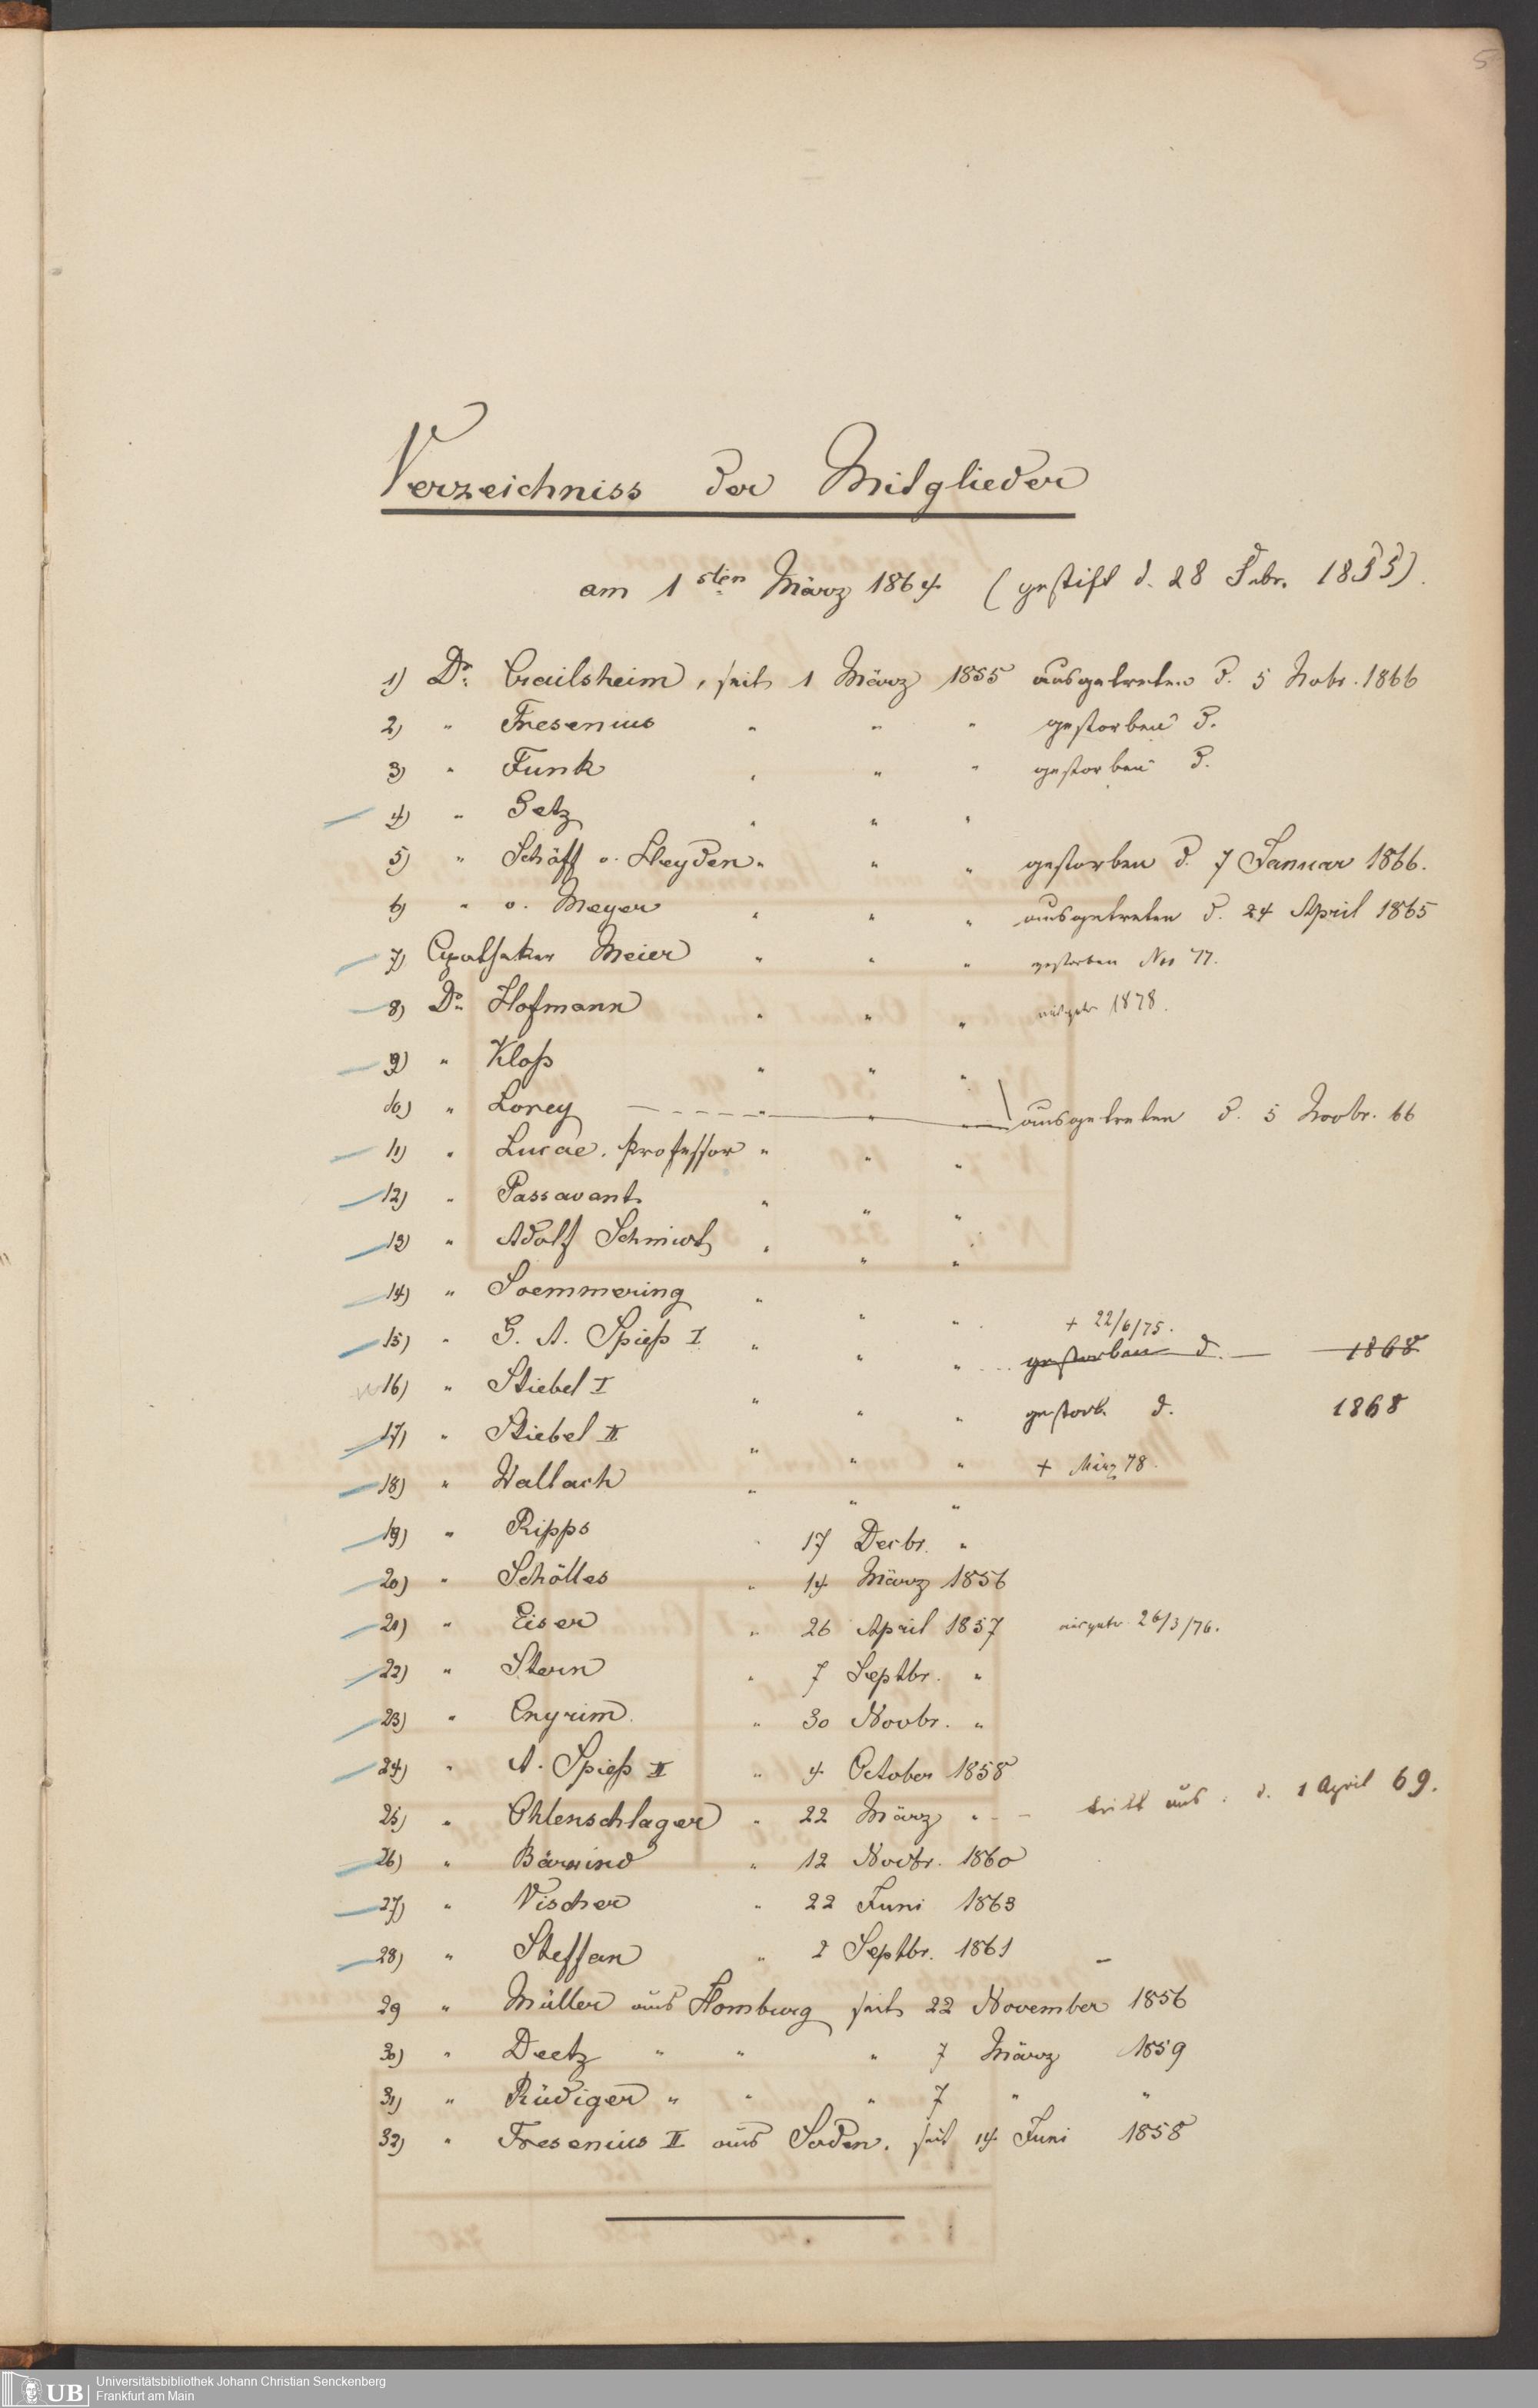 5
Verzeichniss der Mitglieder
am 1sten März 1864 (gestift d. 28 Febr. 1855).
1) Dr. Crailsheim, seit 1 März 1855 ausgetreten d. 5 Nobr. 1866
2) " Fresenius " " " gestorben d.
3) " Funk " " " gestorben d.
4) " Getz " " "
5) " Schöff v. Heyden " " " gestorben d. 7 Januar 1866.
6) " v. Meyer " " " ausgetreten d. 24 April 1865
7) Apotheker Meier " " " gestorben Nov 77.
8) Dr. Hofmann " " " ausgetr 1878.
9) " Kloß " " "
10) " Lorey " " " ausgetreten d. 5 Novbr. 66
11) " Lucae, Professor " " "
12) " Passavant " " "
13) " Adolf Schmidt " " "
14) " Soemmering " " "
+ 22/6/75.
15) " G. A. Spieß I " " " gestorben d. — 1868
16) " Stiebel I " " " gestorb. d. 1868
17) " Stiebel II " " " + März 78.
18) " Wallach " " "
19) " Ripps " 17 Decbr. "
20) " Schölles " 14 März 1856
21) " Eiser " 26 April 1857 ausgetr 26/3/76.
22) " Stern " 7 Septbr. "
23) " Cnyrim " 30 Novbr. "
24) " A. Spieß II " 4 October 1858
25) " Ohlenschlager " 22 März " - tritt aus. d. 1 April 69.
26) " Bärwind " 12 Novbr. 1860
27) " Vischer " 22 Juni 1863
28) " Steffan " 2 Septbr. 1861
29 " Müller aus Homburg seit 22 November 1856
30) " Deetz " " " 7 März 1859
31) " Rüdiger " " " 7 " "
32) " Fresenius II aus Soden. seit 14 Juni 1858
UB
Universitätsbibliothek Johann Christian Senckenberg
Frankfurt am Main